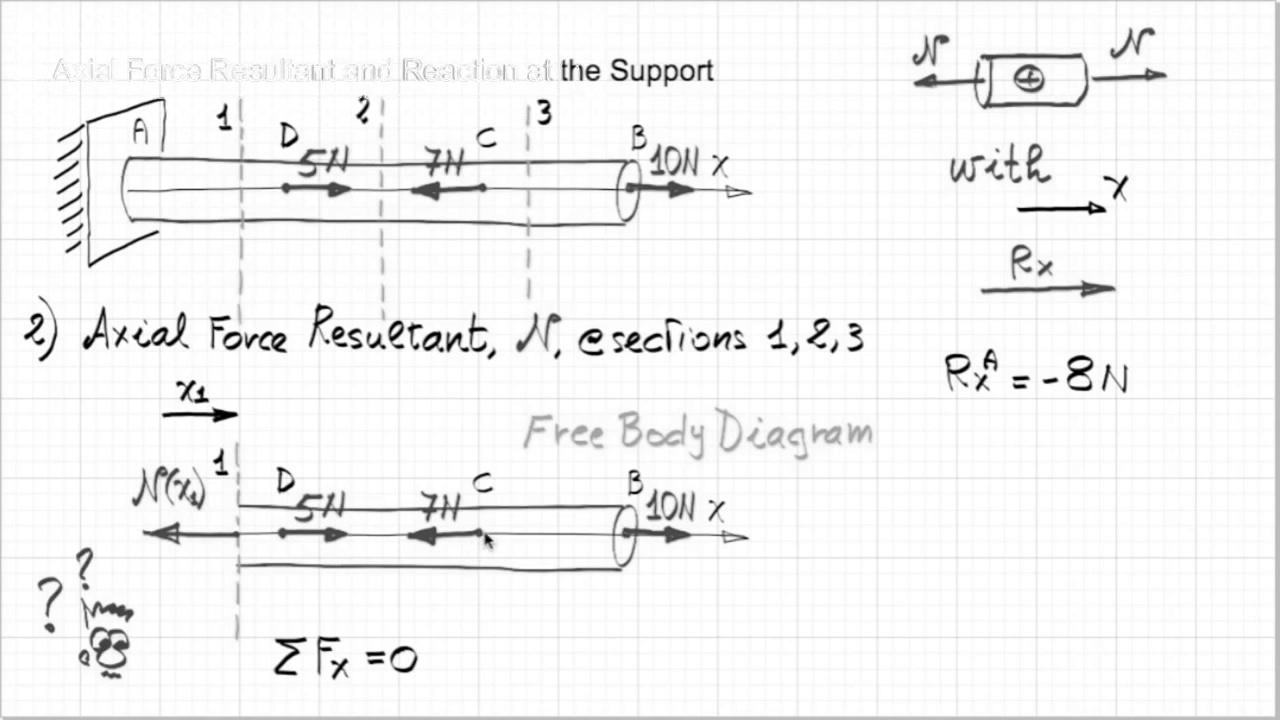 Axial Force Resultant and Reaction at the Support
A 1 D 5N 2 7N C 3 B 10N x
N + N
with
x
Rx
2) Axial Force Resultant, N, @sections 1,2,3
RxA = -8N
x1
Free Body Diagram
N(x1) 1 D 5N 7N C B 10N x
? ?
ΣFx =0